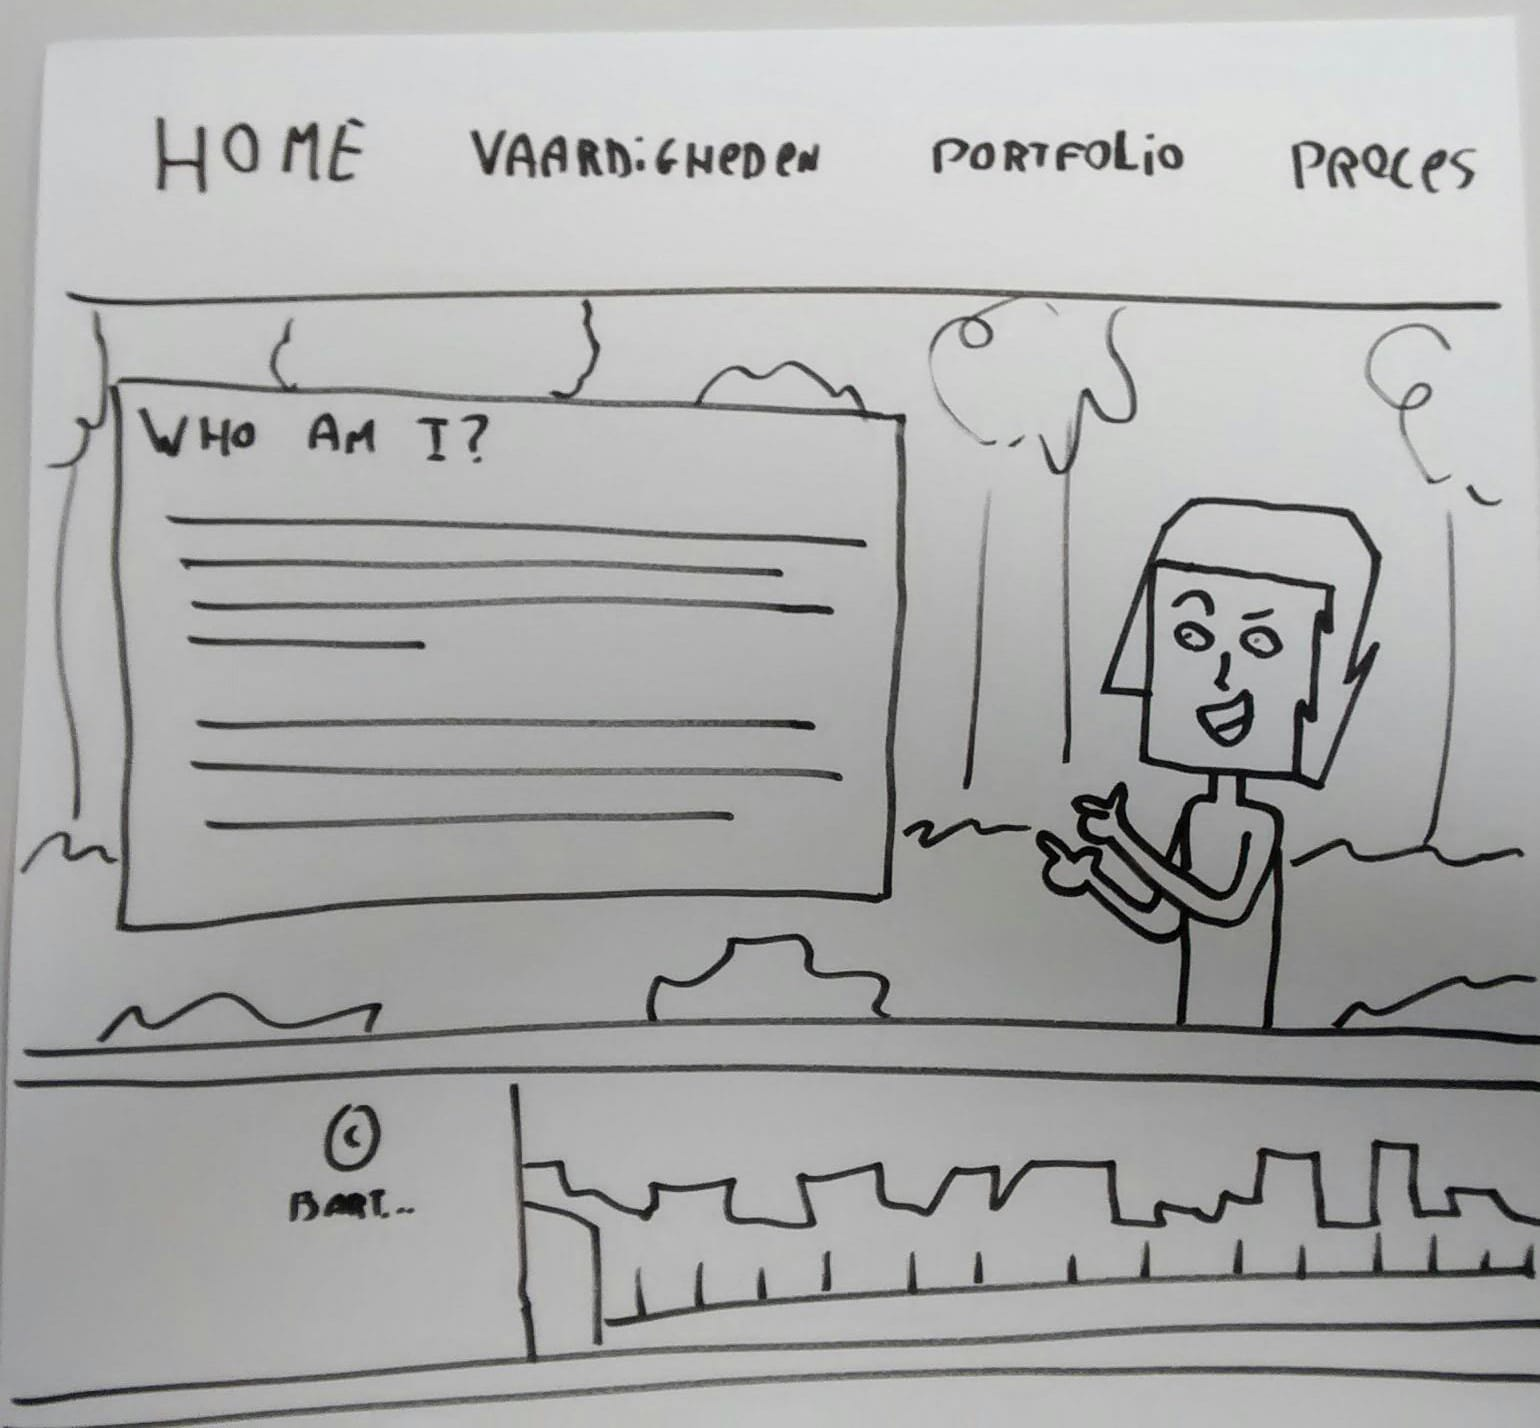 HOME VAARDiGHeDeN PORTFOLiO PROCeS
WHO AM I?
©
BART...